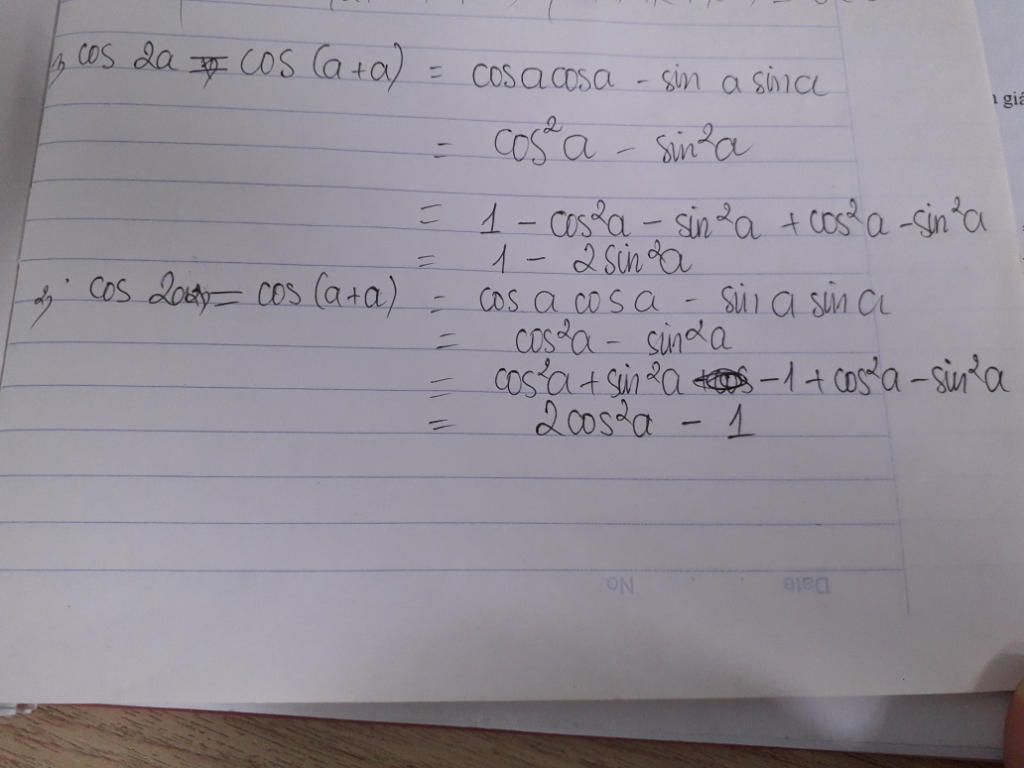 1) cos 2a = cos (a+a) = cosacosa - sin a sin a
= cos²a - sin²a
= 1 - cos²a - sin²a + cos²a - sin²a
= 1 - 2sin²a
2) cos 2a = cos (a+a) = cos a cos a - sin a sin a
= cos²a - sin²a
= cos²a + sin²a - 1 + cos²a - sin²a
= 2cos²a - 1
No.
Date
giá